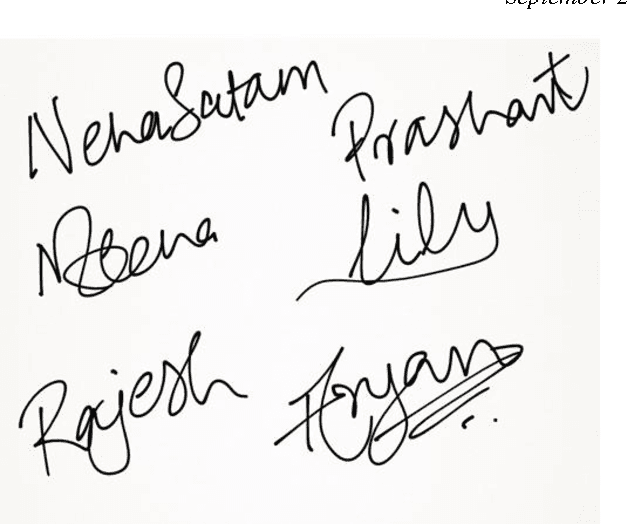 September 2
Neha Satam Prashant
Meena Lily
Rajesh Aryan